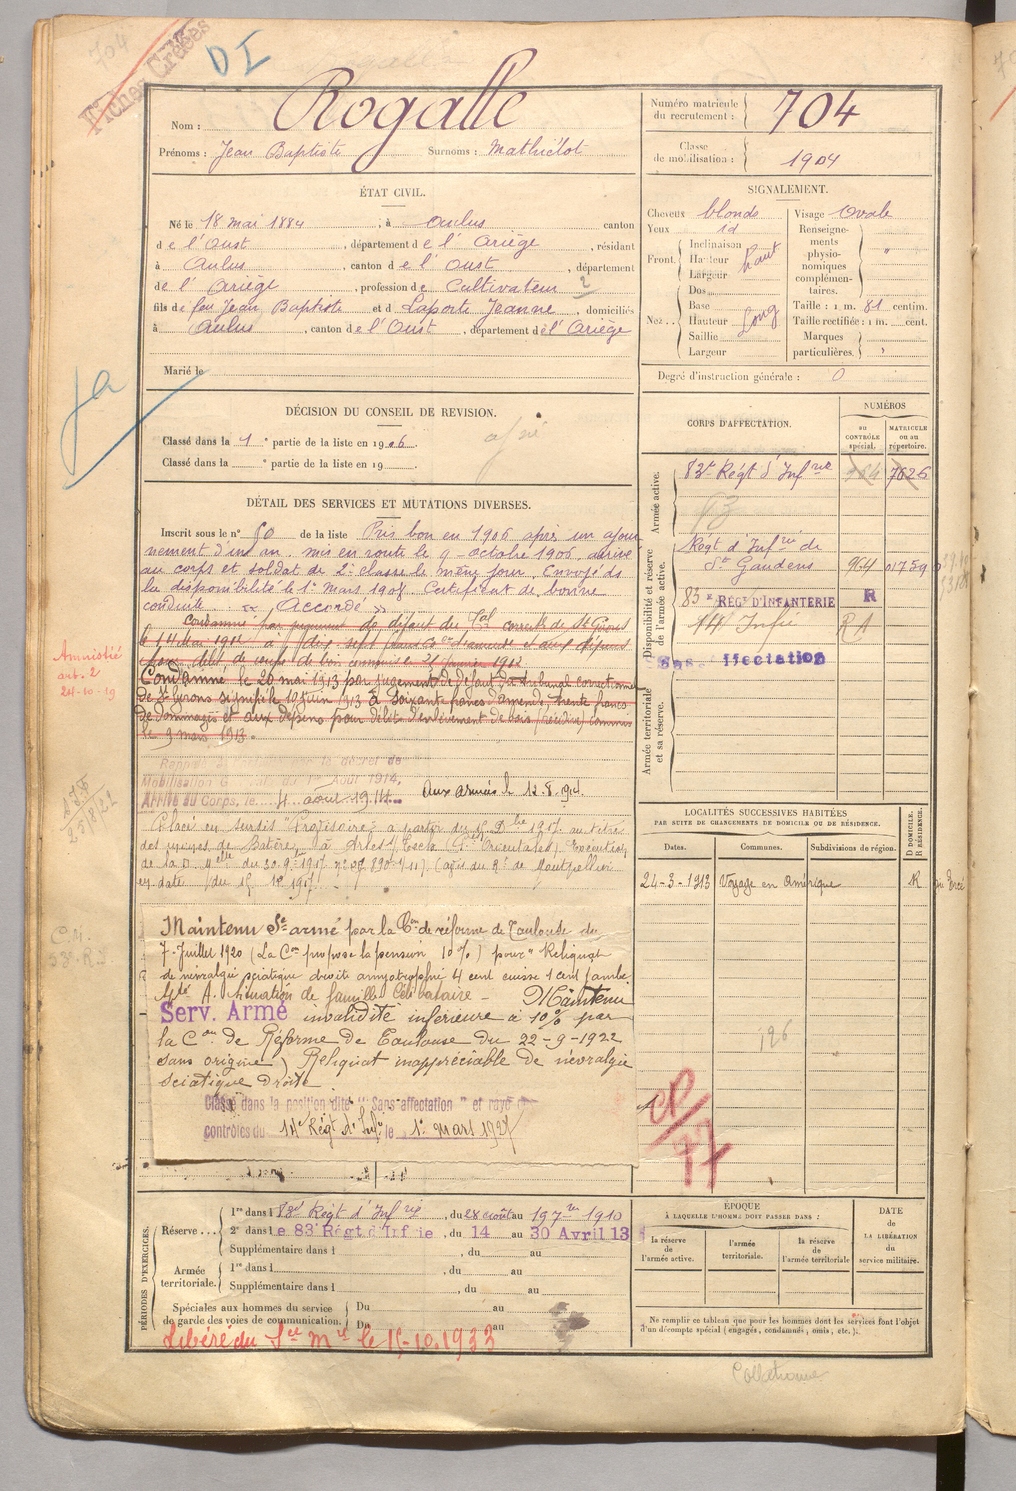 704
Fiches Créées
DI
Nom : Rogalle
Prénoms : Jean Baptiste Surnoms : Mathiélot
Numéro matricule du recrutement : 704
Classe de mobilisation : 1904
ÉTAT CIVIL.
Né le 18 mai 1884, à Aulus canton
de l'Oust, département de l'Ariège, résidant
à Aulus, canton de l'Oust, département
de l'Ariège, profession de Cultivateur 2
fils de feu Jean Baptiste et de Laporte Jeanne, domiciliés
à Aulus, canton de l'Oust, département de l'Ariège
Marié le
SIGNALEMENT.
Cheveux blonds
Yeux id
Front. Inclinaison Hauteur Largeur haut
Nez... Dos Base Hauteur Saillie Largeur Long
Visage Ovale
Renseignements physionomiques complémentaires. "
Taille : 1 m. 81 centim.
Taille rectifiée : 1 m. cent.
Marques particulières.
Degré d'instruction générale : 0
Ja
DÉCISION DU CONSEIL DE REVISION.
Classé dans la 1e partie de la liste en 1906.
Classé dans la e partie de la liste en 19 .
DÉTAIL DES SERVICES ET MUTATIONS DIVERSES.
Inscrit sous le n° 50 de la liste Pris bon en 1906 après un ajour
nement d'un an. mis en route le 9 octobre 1906, arrivé
au corps et soldat de 2e classe le même jour. Envoyé ds
la disponibilité le 1er mars 1908. Certificat de bonne
conduite " Accordé "
Condamné par jugement de défaut du Tal correctel de St Girons
le 14 mai 1912 à dix sept francs d'amende et aux dépens
pour délit de coupe de bois commis le 21 janvier 1912
Condamné le 20 mai 1913 par jugement de défaut du tribunal correctionnel
de St Girons signifié le 10 juin 1913 à soixante francs d'amende, trente francs
de dommages et aux dépens pour délit d'enlèvement de bois (récidive) commis
le 9 mars 1913.
Amnistié
art. 2
24-10-19
Mobilisation G du 1er Août 1914,
Arrivé au Corps, le 4 août 1914 Aux armées le 12.8.914.
Placé en sursis "Provisoire" à partir du 15 Dbre 1917 au titre
des mines de Batère, à Arles s/Tech (P. Orientales). Exécution
de la D. Melle du 30.9.1917
en date du 15 1917
Maintenu Sce armé par la Con de réforme de Toulouse du
7-Juillet 1920 (La Con propose la pension 10%) pour "Reliquat
de névralgie sciatique droite amyotrophie 4 cent cuisse 1 cent jambe
Situation de famille Célibataire - Maintenu
Serv. Armé invalidité inférieure à 10% par
la Con de Réforme de Toulouse du 22-9-1922
sans origine) Reliquat inappréciable de névralgie
sciatique droite.
Classé dans la position dite "Sans affectation" et rayé des
contrôles du 14e Régt d'Infie le 1er mars 1927
CORPS D'AFFECTATION.
NUMÉROS
au CONTRÔLE spécial.
MATRICULE ou au répertoire.
Armée active.
83e Régt d'Infrie 7626
83
Disponibilité et réserve de l'armée active.
Régt d'Infrie de
St Gaudens 964 01759
83e RÉGt D'INFANTERIE R
14e Infie RA
Sans affectation
Armée territoriale et sa réserve.
LOCALITÉS SUCCESSIVES HABITÉES
PAR SUITE DE CHANGEMENTS DE DOMICILE OU DE RÉSIDENCE.
Dates. Communes. Subdivisions de région. D DOMICILE. R RÉSIDENCE.
24-3-1913 Voyage en Amérique R
196
CP/77
PÉRIODES D'EXERCICES.
Réserve... 1re dans le 83e Régt d'Infrie, du 28 août au 19 7bre 1910
2e dans le 83e Régt d'Infrie, du 14 au 30 Avril 13
Supplémentaire dans l , du au
Armée territoriale. 1re dans l , du au
Supplémentaire dans l , du au
Spéciales aux hommes du service de garde des voies de communication. Du au
Du au
Libéré du Sce mre le 15-10.1933
ÉPOQUE
À LAQUELLE L'HOMME DOIT PASSER DANS :
la réserve de l'armée active.
l'armée territoriale.
la réserve de l'armée territoriale
DATE de LA LIBÉRATION du service militaire.
Ne remplir ce tableau que pour les hommes dont les services font l'objet
d'un décompte spécial (engagés, condamnés, omis, etc.).
Collationné